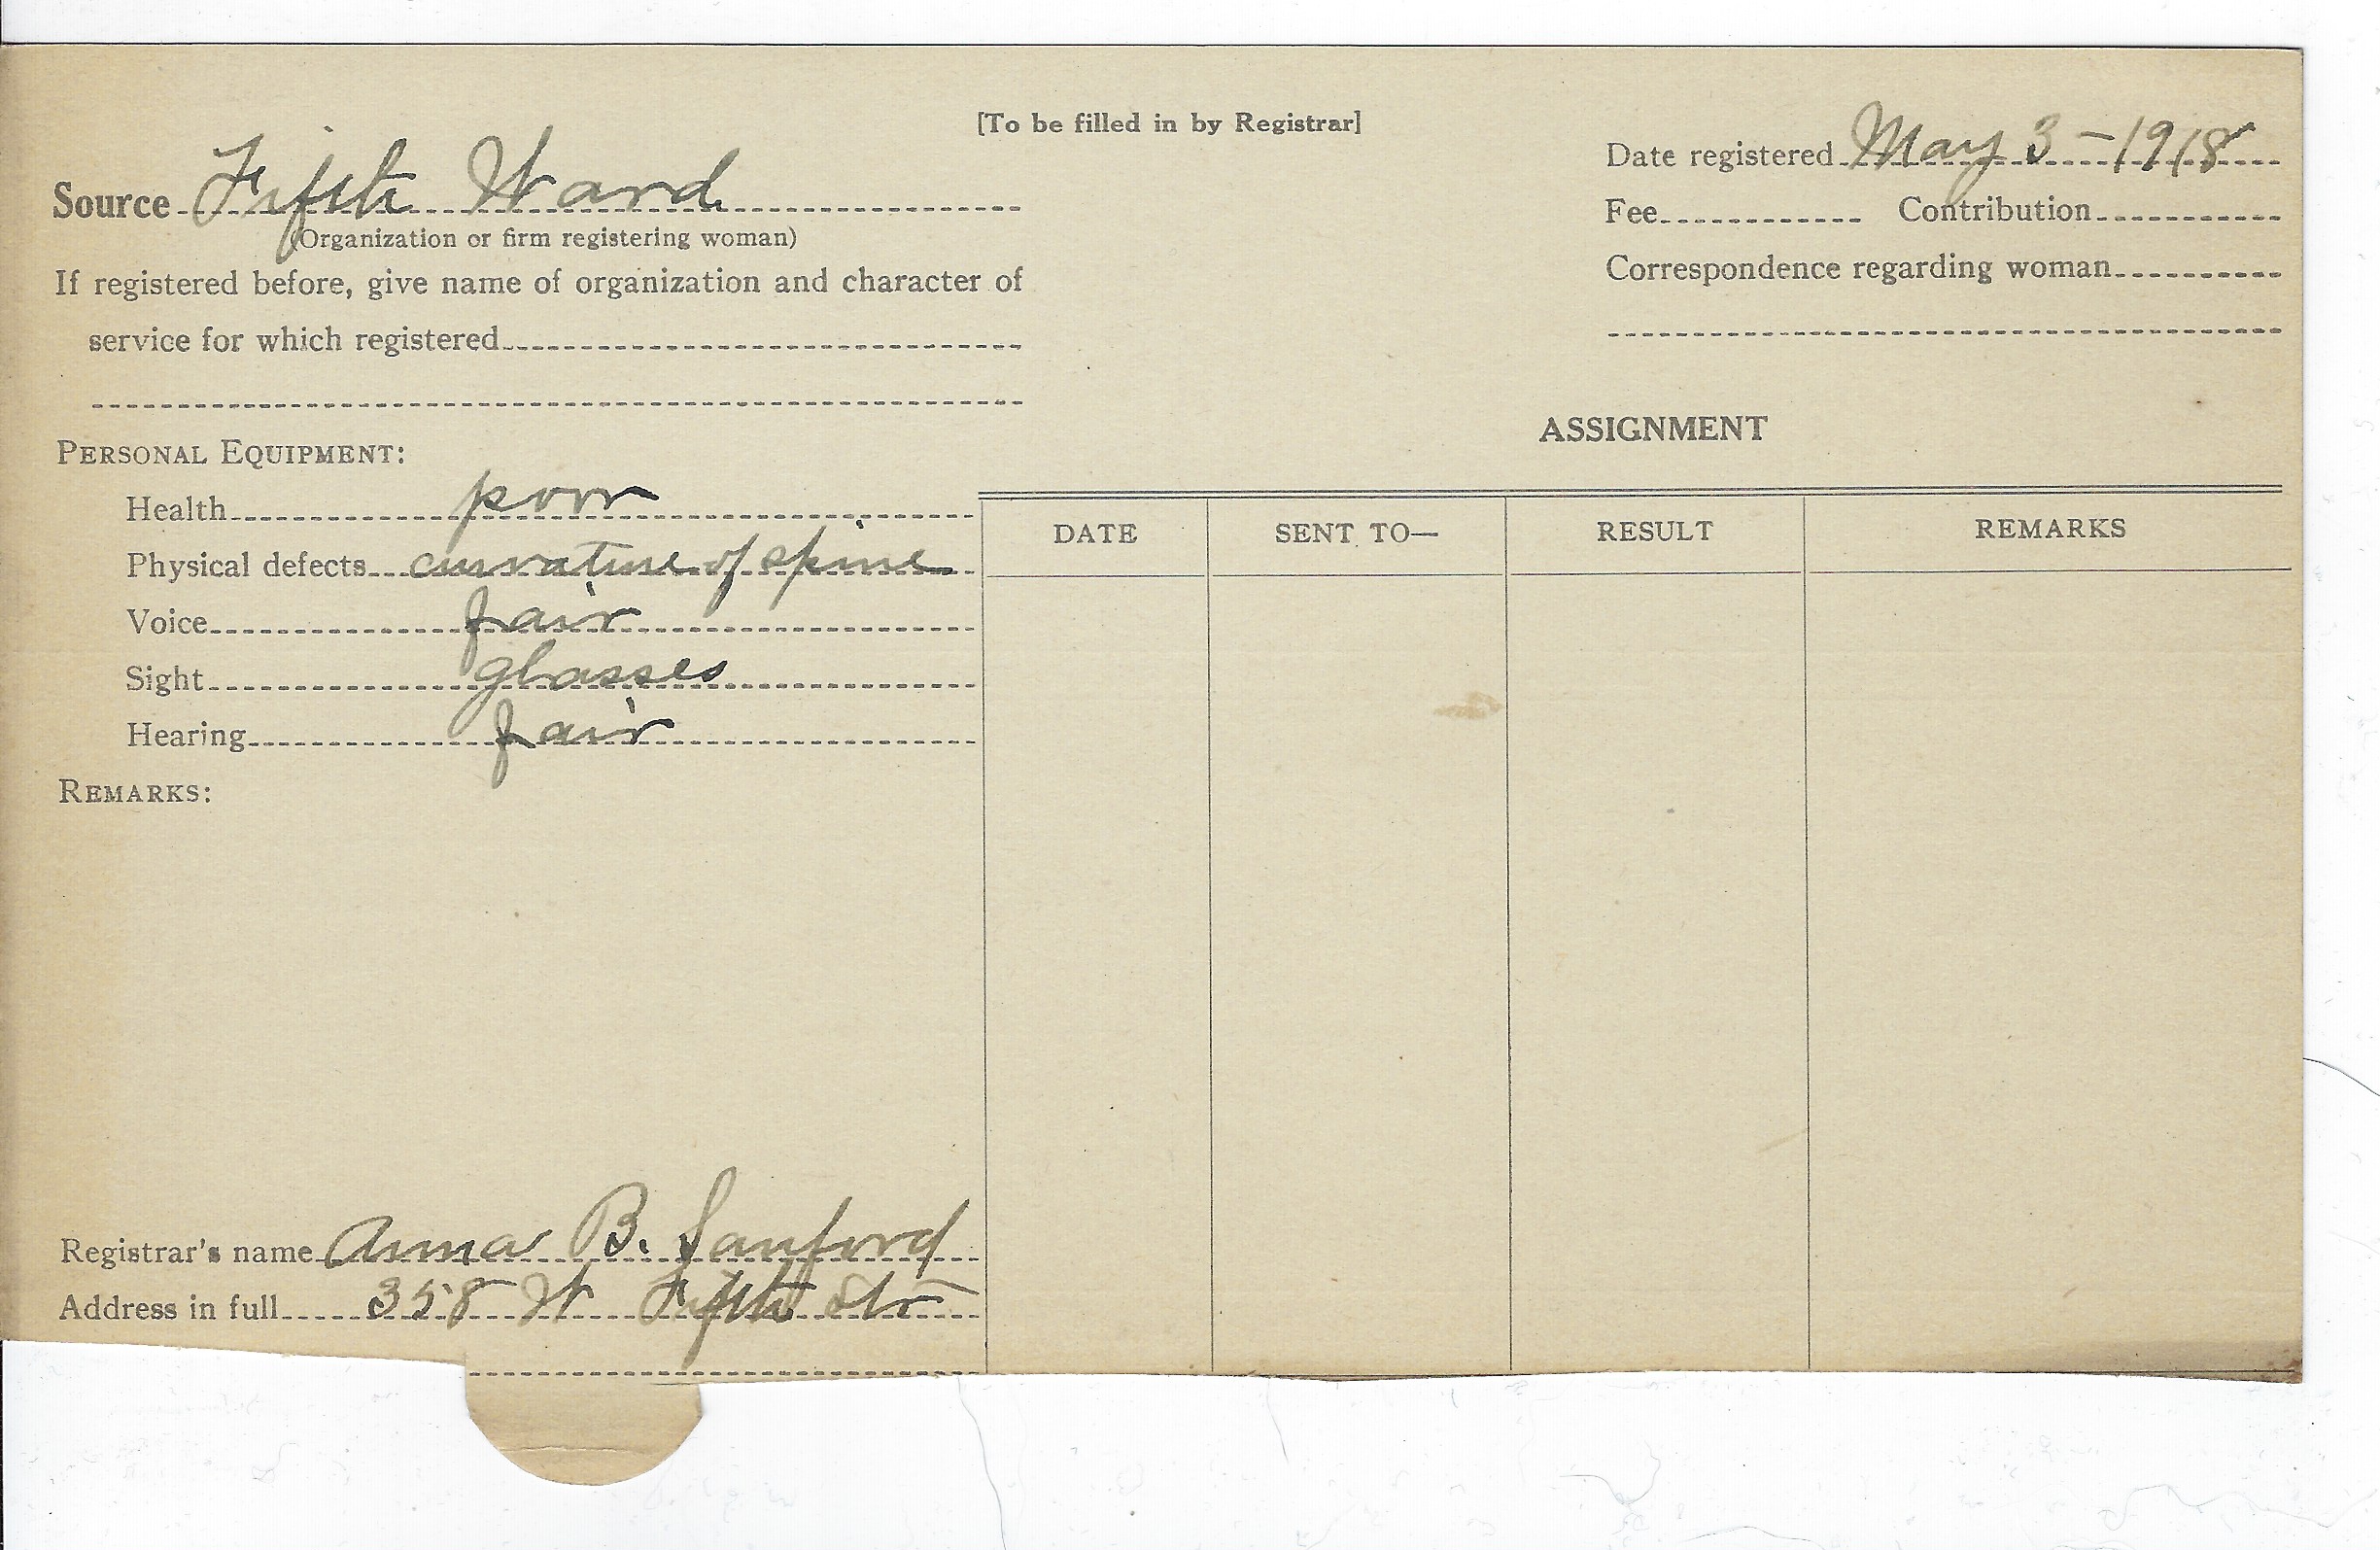 [To be filled in by Registrar]
Source Fifth Ward
(Organization or firm registering woman)
If registered before, give name of organization and character of
service for which registered
Date registered May 3-1918
Fee Contribution
Correspondence regarding woman
PERSONAL EQUIPMENT:
Health poor
Physical defects curvature of spine
Voice fair
Sight glasses
Hearing fair
REMARKS:
Registrar's name Anna B. Sanford
Address in full 358 W Fifth Str
ASSIGNMENT
DATE SENT TO— RESULT REMARKS